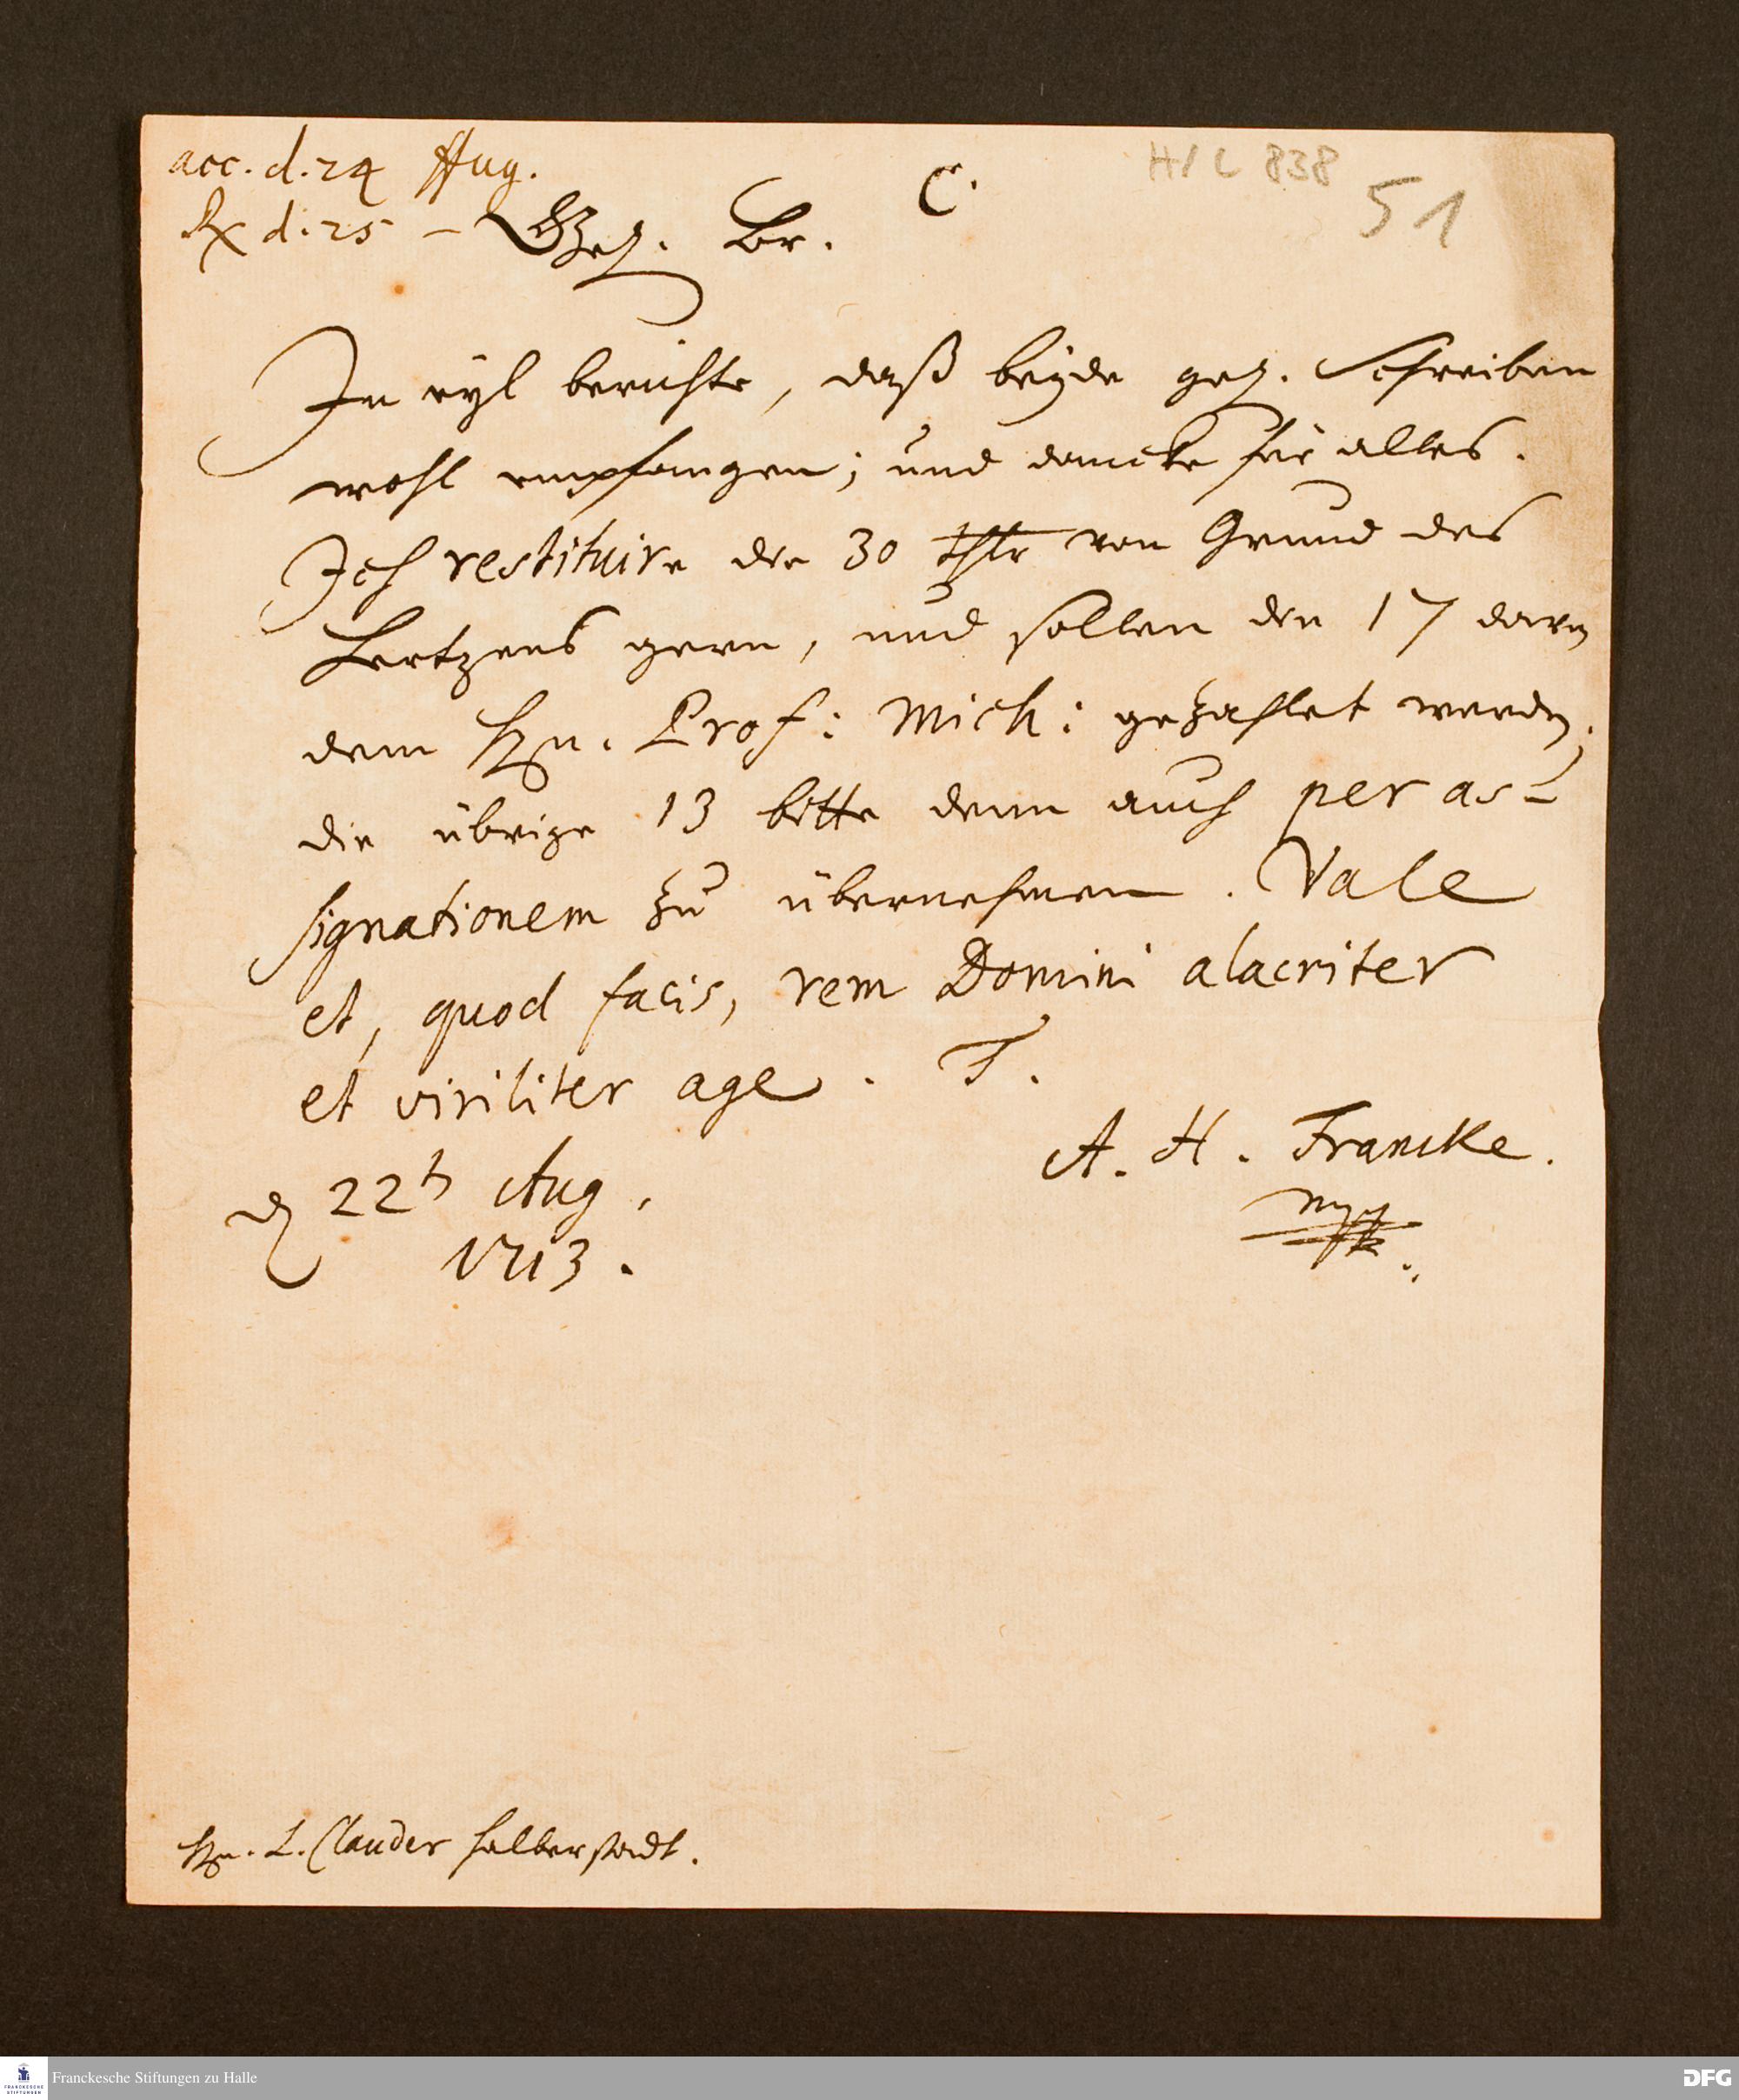 acc. d. 24 Aug.
H/C 838
51
C.
Rx d. 25 – Gel. Br.
In eyl berichte, daß beyde gel. Schreiben
wohl empfangen; und dancke für alles.
Ich restituire die 30 thlr von Grund des
Hertzens gern, und sollen die 17 davon
dem Hn. Prof: Mich: gezahlet werden;
die übrige 13 bitte denn auch per as-
signationem zu übernehmen. Vale
et, quod facis, rem Domini alacriter
et viriliter age. T.
A. H. Francke.
mpp
d 22t Aug.
1713.
Hn. L. Clauder Halberstadt.
Franckesche Stiftungen zu Halle
FRANCKESCHE STIFTUNGEN
DFG